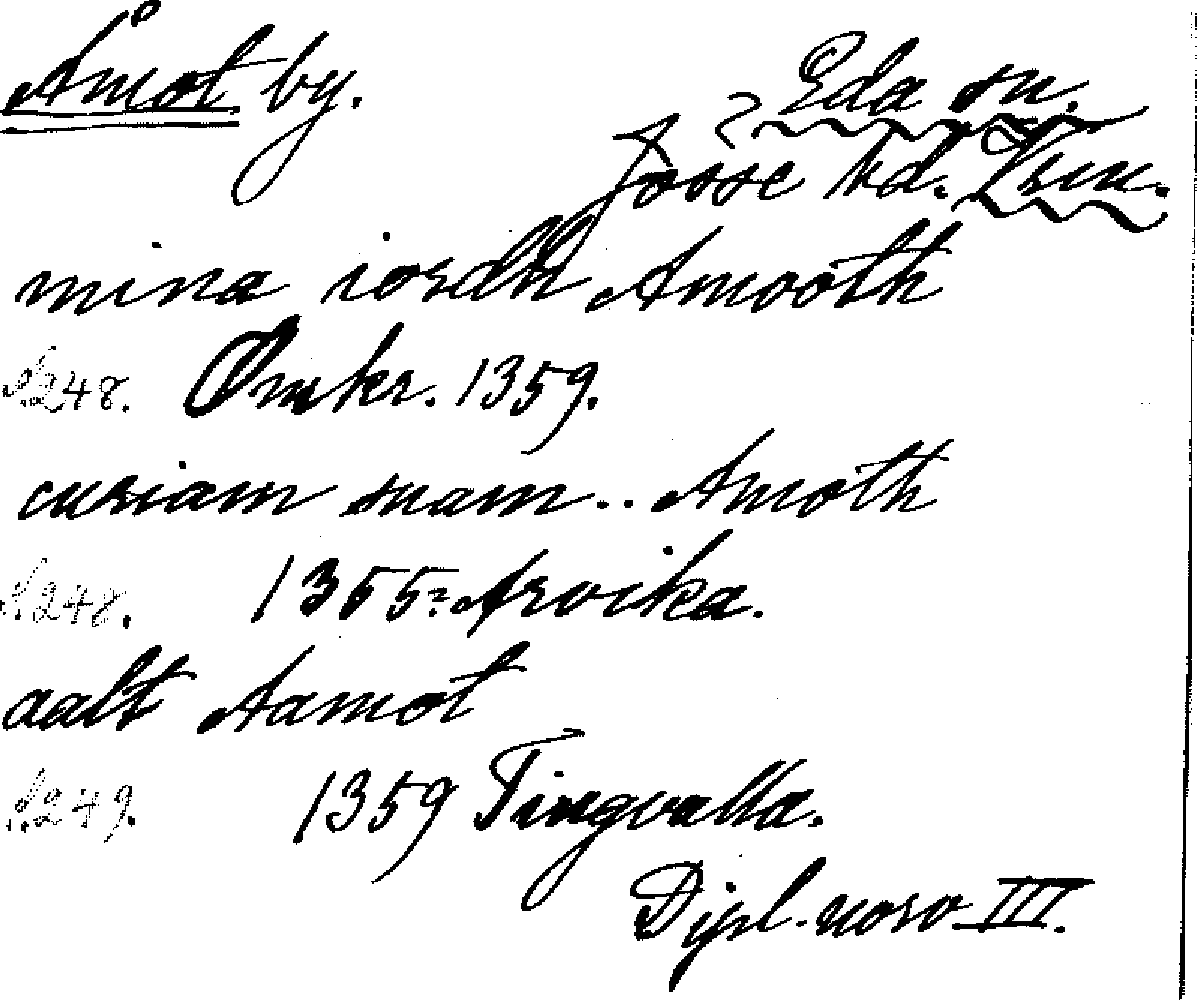 Åmot by.
? Eda sn.
Jösse hd. Vrm.
mina iordh Amooth
S. 248. Omkr. 1359.
curiam suam.. Amoth
S. 248. 1355? Arvika.
aalt Aamot
S. 249. 1359 Tingvalla.
Dipl. norv III.